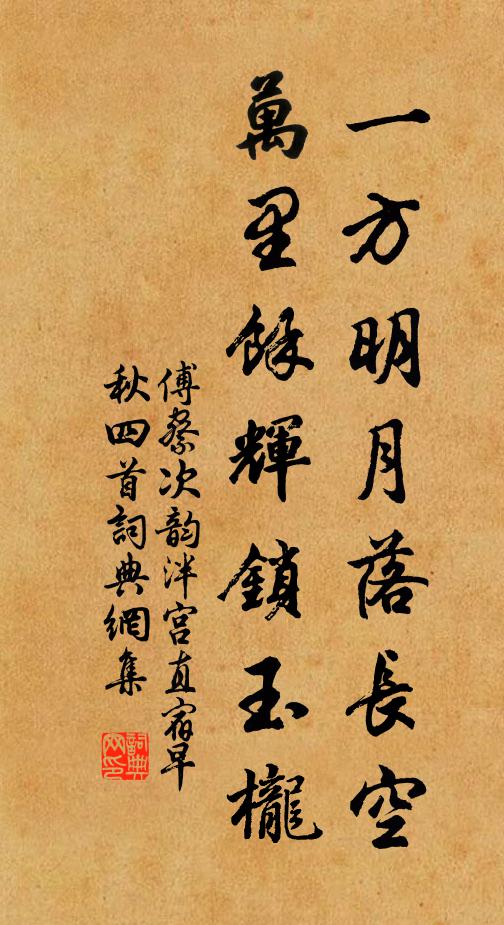 一方明月落長空
萬里餘輝鎖玉櫳
傅察次韵泮宫直宿早
秋四首詞典網集
詞典
网印